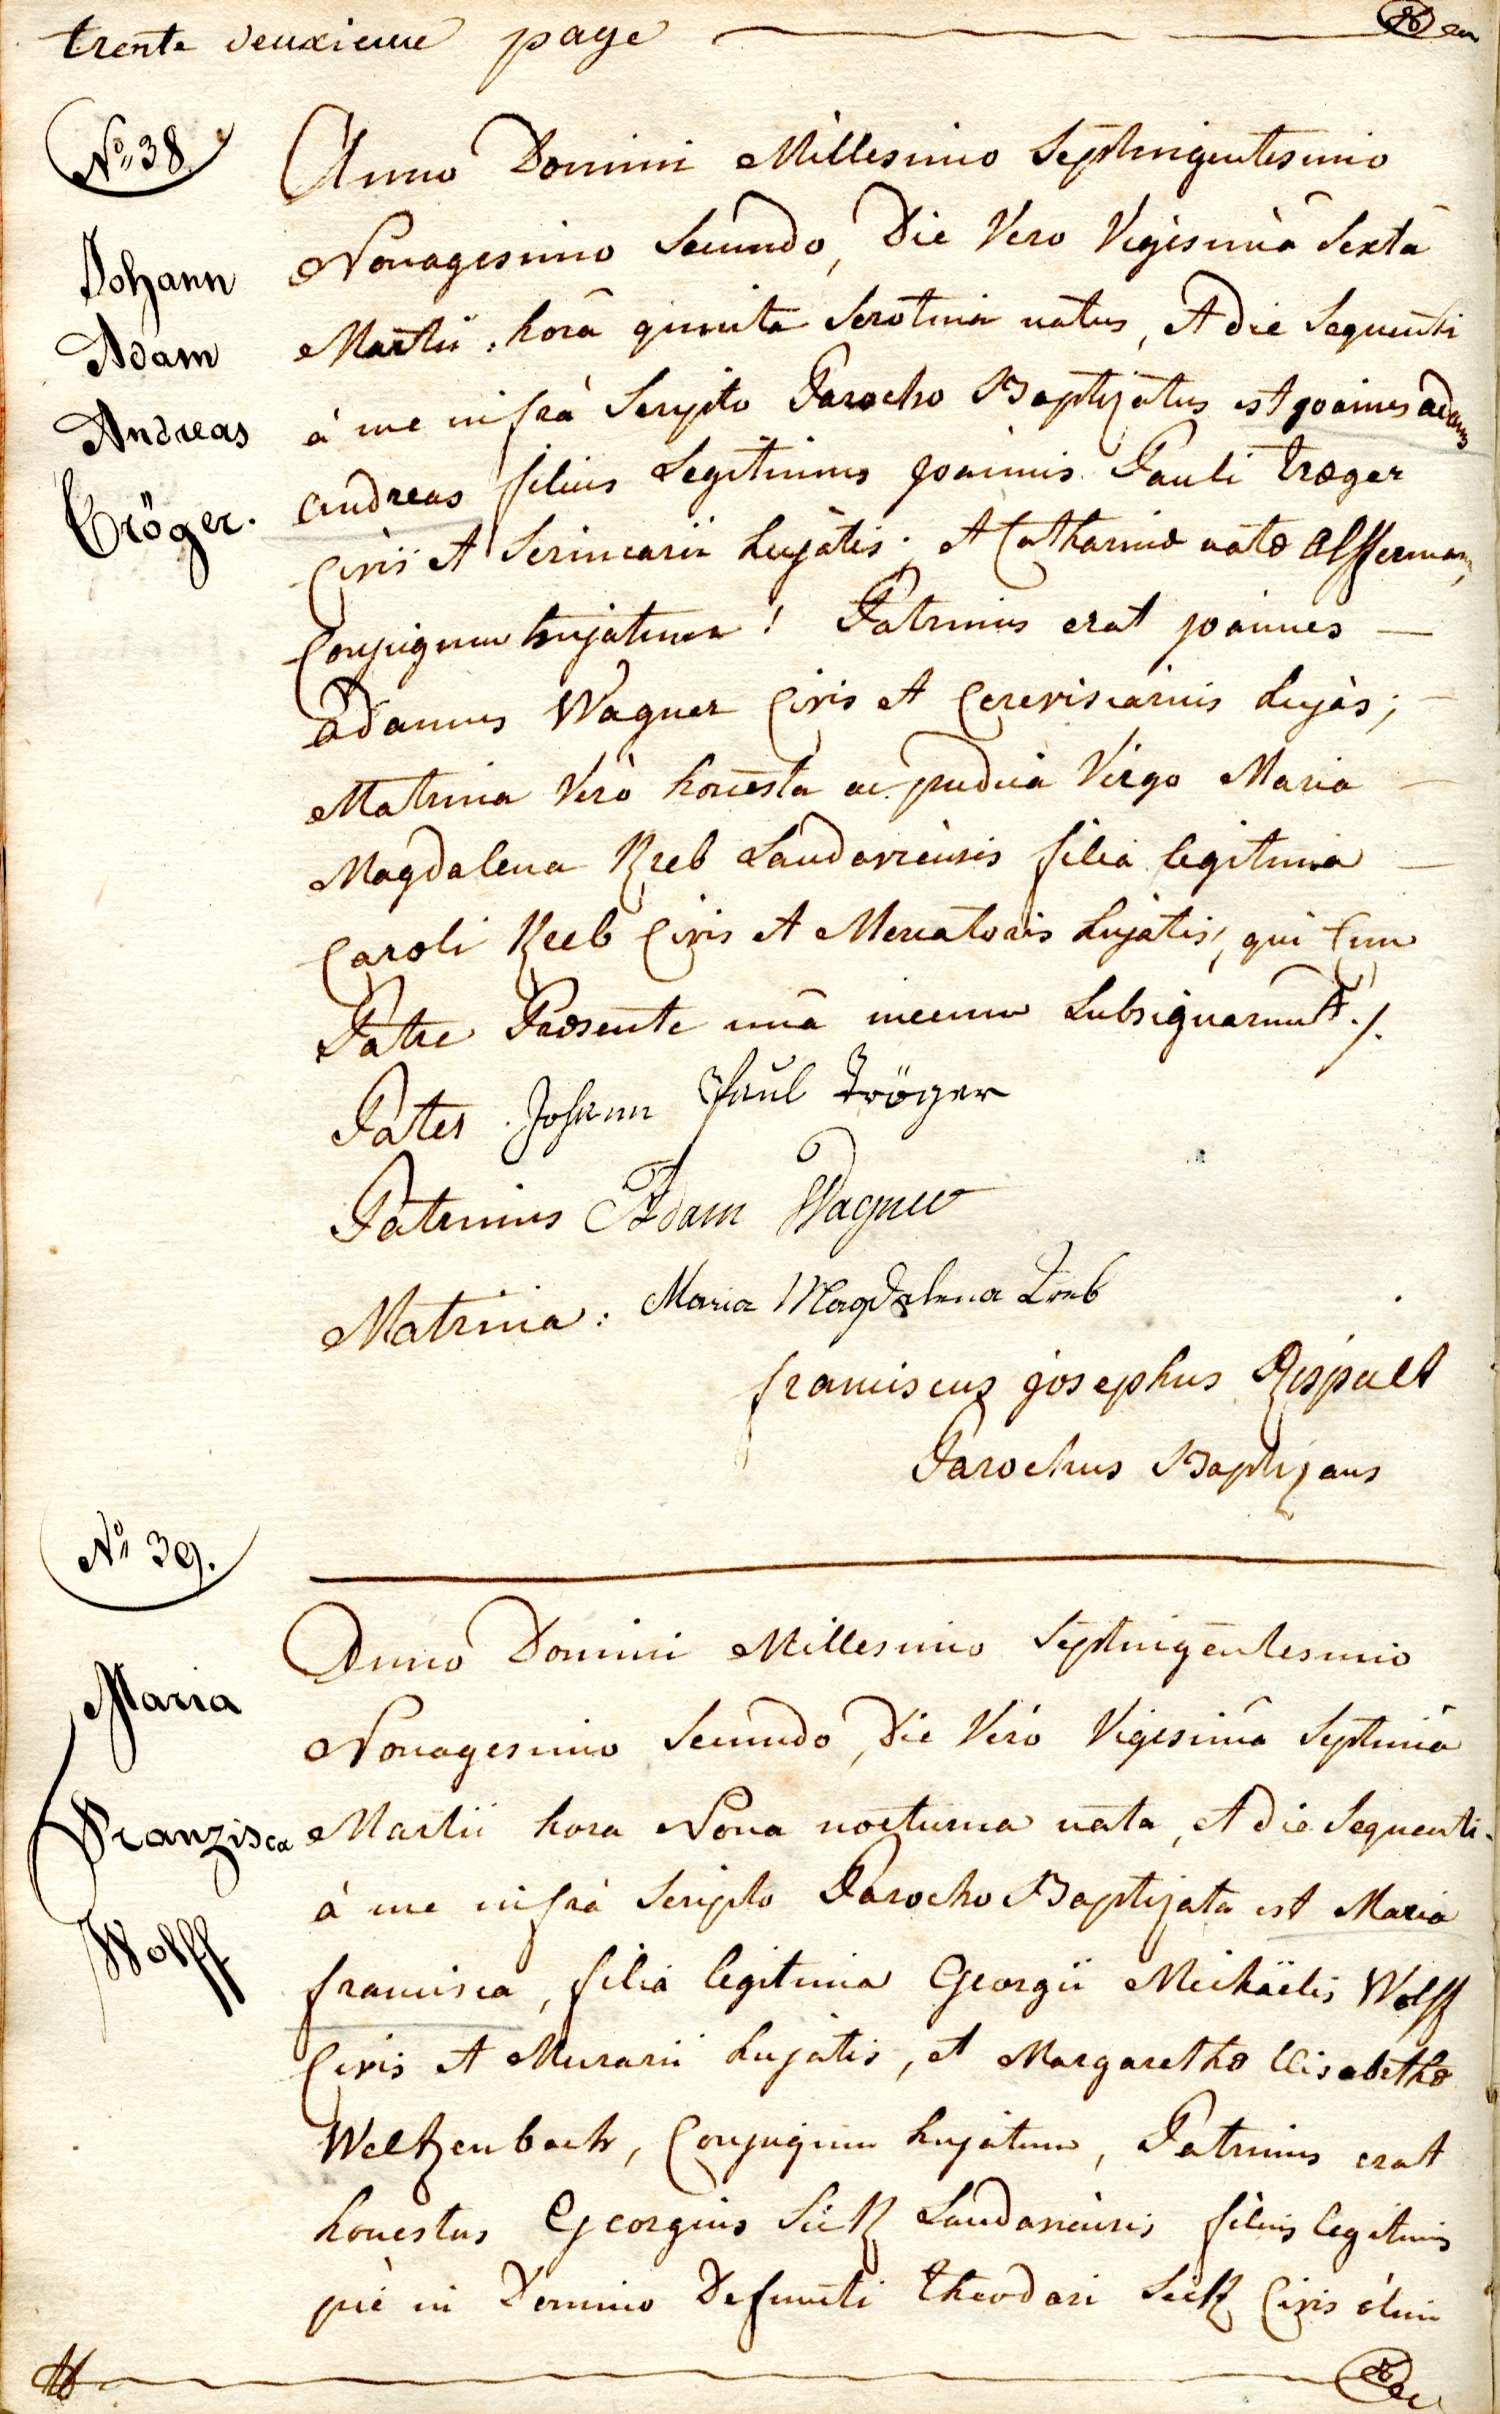 trente deuxieme page
No 38
Johann
Adam
Andreas
Tröger.
Anno Domini Millesimo Septingentesimo
Nonagesimo Secundo, Die Vero Vigesimâ Sextâ
Martii, horâ quinta Serotina natus, et die Sequenti
à me infrà Scripto Parocho Baptizatus est joannes adamus
andreas filius Legitimus joannis Pauli træger
Civis et Scrinearii hujatis; et Catharinæ natæ
Conjugum hujatum! Patrinus erat joannes
adamus Wagner Civis et Cerevisiarius hujàs;
Matrina Verò honesta ac pudica Virgo Maria
Magdalena Kreb Landaviensis filia legitima
Caroli Kreb Civis et Mercatoris hujatis, qui Cum
Patre Præsente unâ mecum Subsignarunt ./.
Pater Johann Paul Tröger
Patrinus Adam Wagner
Matrina: Maria Magdalena
franciscus josephus
Parochus Baptizans
No 39.
Maria
Franzisca
Wolff
Anno Domini Millesimo Septingentesimo
Nonagesimo Secundo, Die Verò Vigesimâ Septimâ
Martii hora Nona nocturna nata, et die Sequenti
à me infrà Scripto Parocho Baptizata est Maria
francisca, filia legitima Georgii Michäelis Wolff
Civis et Murarii hujatis, et Margarethæ Elisabethæ
Weltzenbach, Conjugum hujatum, Patrinus erat
honestus Georgius Landaviensis filius legitimus
piè in Domino Defuncti theodori Civis olim